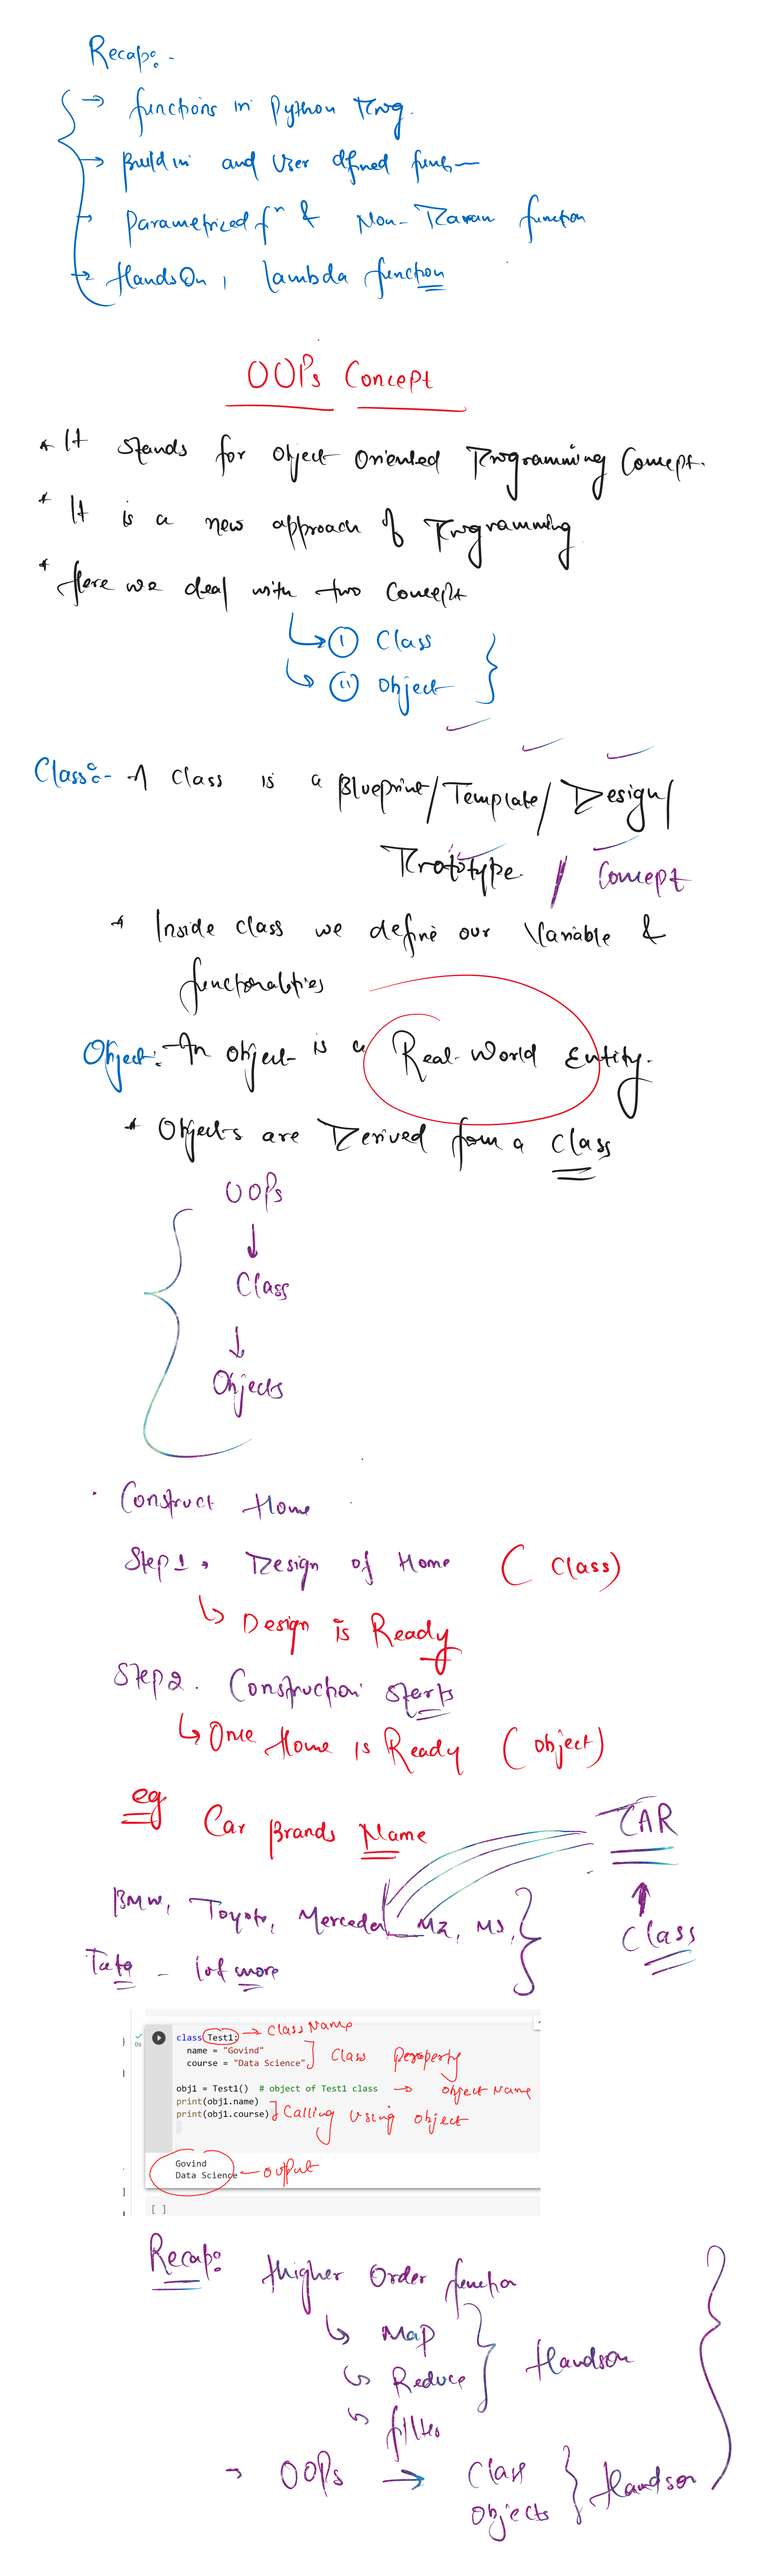 Recap:-
→ functions in Python Prog.
→ Build in and User defined func
→ Parametrized fⁿ & Non-Param function
→ HandsOn, lambda function
OOPs Concept
* It stands for Object Oriented Programming Concept.
* It is a new approach of Programming
* Here we deal with two Concept
↳ (i) Class
↳ (ii) Object
Class:- A Class is a Blueprint/Template/Design/
Prototype / Concept
* Inside class we define our Variable &
functionalities
Object:- An object is a Real-World Entity.
* Objects are Derived from a Class
OOPs
↓
Class
↓
Objects
Construct Home
Step 1. Design of Home (Class)
↳ Design is Ready
Step 2. Construction Starts
↳ Once Home is Ready (object)
eg
Car Brands Name
CAR
↑
Class
BMW, Toyoto, Mercedes, MZ, MS,
Tata - lot more
class Test1: → Class Name
name = "Govind"
course = "Data Science" ] Class Property
obj1 = Test1() # object of Test1 class → object Name
print(obj1.name)
print(obj1.course) ] Calling Using object
Govind
Data Science - output
[ ]
Recap: Higher Order function
↳ Map
↳ Reduce } Handson
↳ filter
→ OOPs → Class
Objects } Handson